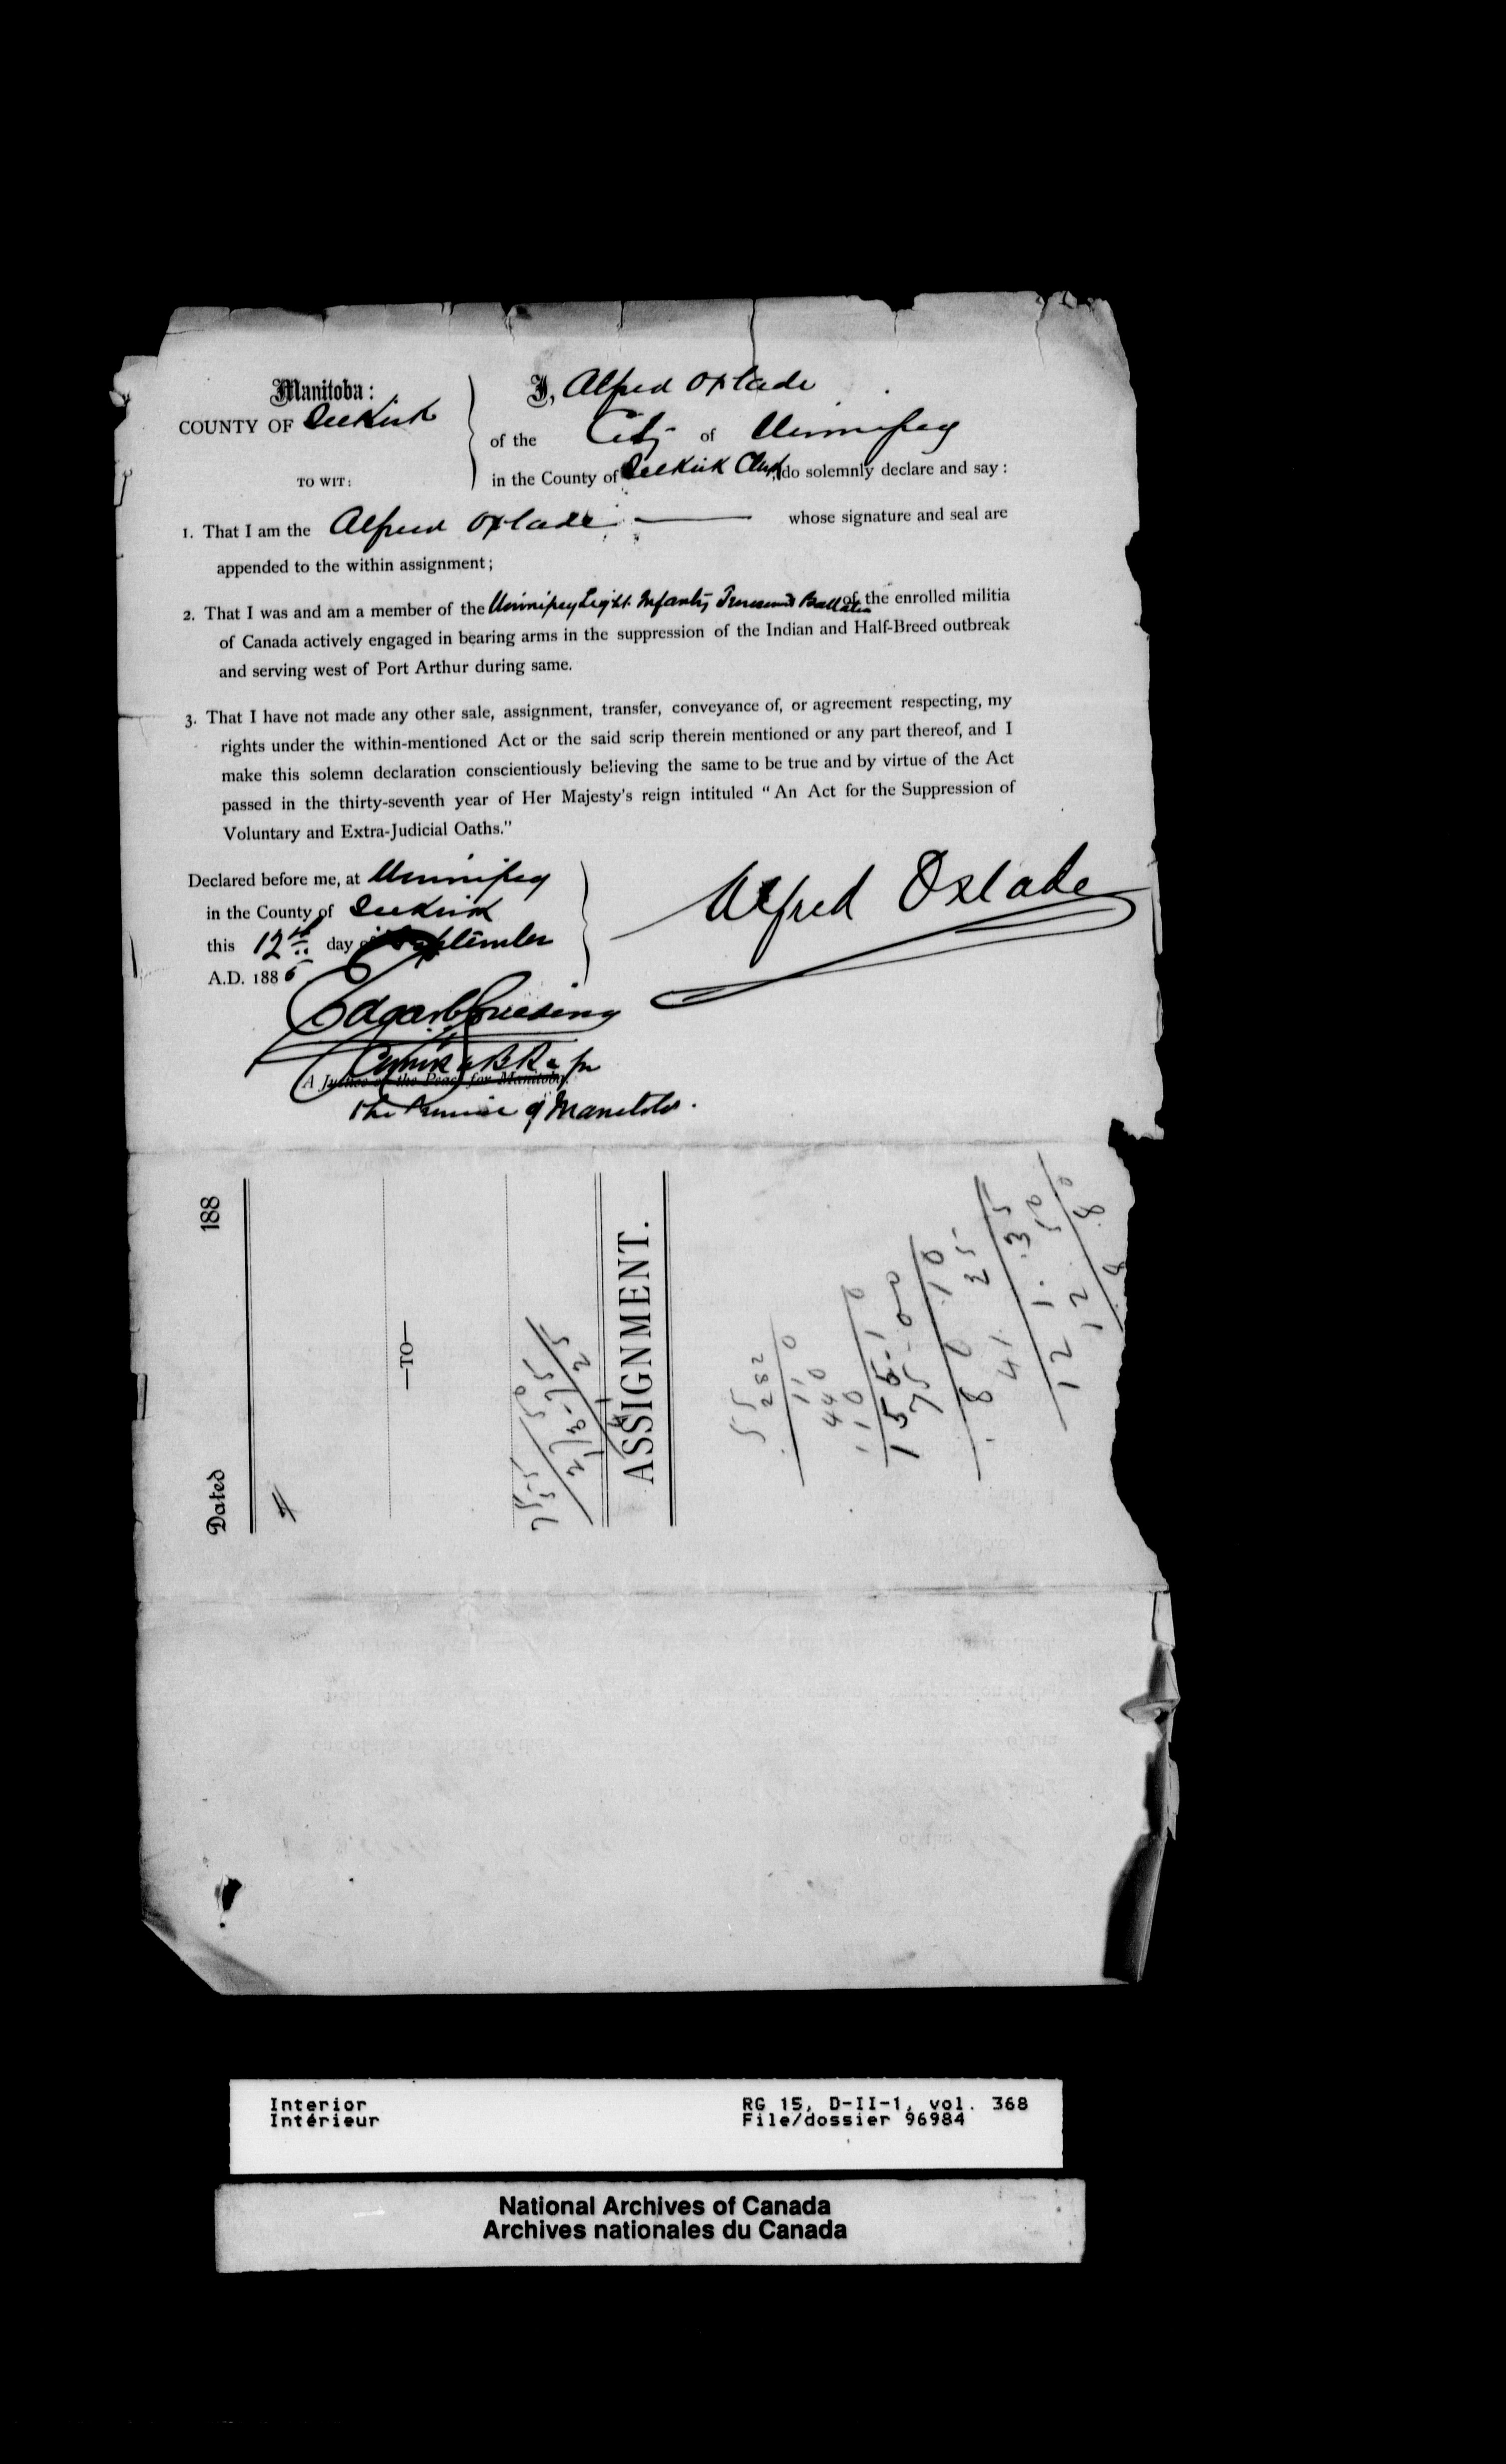 Manitoba:
COUNTY OF Selkirk
TO WIT:
I, Alfred Oxlade
of the City of Winnipeg
in the County of Selkirk Clerk, do solemnly declare and say:
1. That I am the Alfred Oxlade whose signature and seal are
appended to the within assignment;
2. That I was and am a member of the Winnipeg Light Infantry Battalion of the enrolled militia
of Canada actively engaged in bearing arms in the suppression of the Indian and Half-Breed outbreak
and serving west of Port Arthur during same.
3. That I have not made any other sale, assignment, transfer, conveyance of, or agreement respecting, my
rights under the within-mentioned Act or the said scrip therein mentioned or any part thereof, and I
make this solemn declaration conscientiously believing the same to be true and by virtue of the Act
passed in the thirty-seventh year of Her Majesty's reign intituled "An Act for the Suppression of
Voluntary and Extra-Judicial Oaths."
Declared before me, at Winnipeg
in the County of Selkirk
this 12th day of September
A.D. 1885
Alfred Oxlade
A Justice of the Peace for Manitoba.
the Province of Manitoba.
Dated 188
—TO—
ASSIGNMENT.
55
252
110
440
110
Interior
Intérieur
RG 15, D-II-1, vol. 368
File/dossier 96984
National Archives of Canada
Archives nationales du Canada